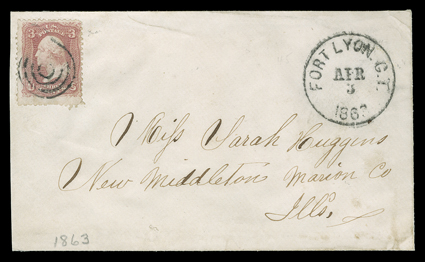 3 3
FORT LYON. C.T.
APR
3
1863
Miss Sarah Huggins
New Middleton Marion Co
Ills.
1863